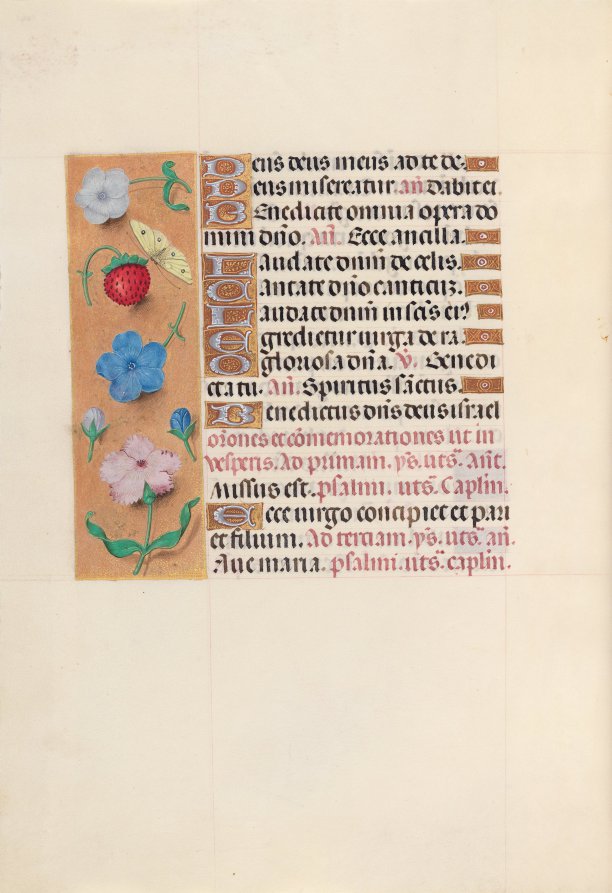 Deus deus meus ad te de
Deus misereatur. añ Dabit ei
Benedicite omnia opera do
mini dño. Añ. Ecce ancilla.
Laudate dñm de celis.
Cantate dño canticũ.
Laudate dñm in scis eiꝰ
Egredietur uirga de ra.
O gloriosa dña. v̄. Benedi
cta tu. Añ. Spiritus sãctus.
Benedictus dñs deus israel
orones et cõmemorationes ut in
vesperis. Ad primam. ps̃. uts̃. Añt.
Missus est. psalmi. uts̃. Caplm̃.
Ecce uirgo concipiet et pari
et filium. Ad terciam. ps̃. uts̃. añ.
Aue maria. psalmi. uts̃. caplm̃.